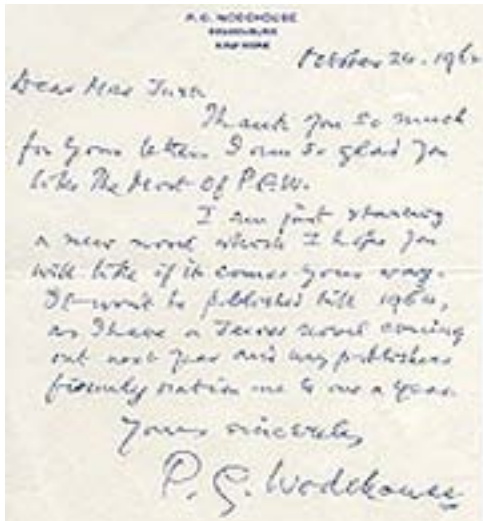 P. G. WODEHOUSE
REMSENBURG
NEW YORK
October 24. 196
Dear Mrs
Thank you so much
for your letter. I am so glad you
like The Most Of P.G.W.
I am just starting
a new novel which I hope you
will like if it comes your way.
It won't be published till 1964,
as I have a Jeeves novel coming
out next year and my publishers
firmly ration me to one a year.
Yours sincerely
P. G. Wodehouse